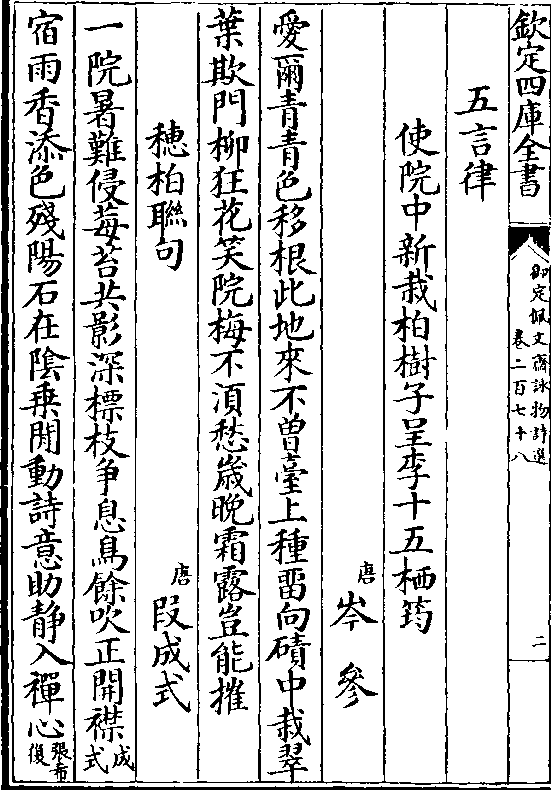 欽定四庫全書
御定佩文齋詠物詩選
卷二百七十八
二
五言律
使院中新栽柏樹子呈李十五栖筠
唐 岑參
愛爾青青色移根此地來不曽臺上種畱向磧中栽翠
葉欺門柳狂花笑院梅不須愁歳晚霜露豈能摧
穗柏聯句
唐 段成式
一院暑難侵莓苔共影深標枝争息鳥餘吹正開襟成式
宿雨香添色殘陽石在陰乗閒動詩意助静入禪心張希復